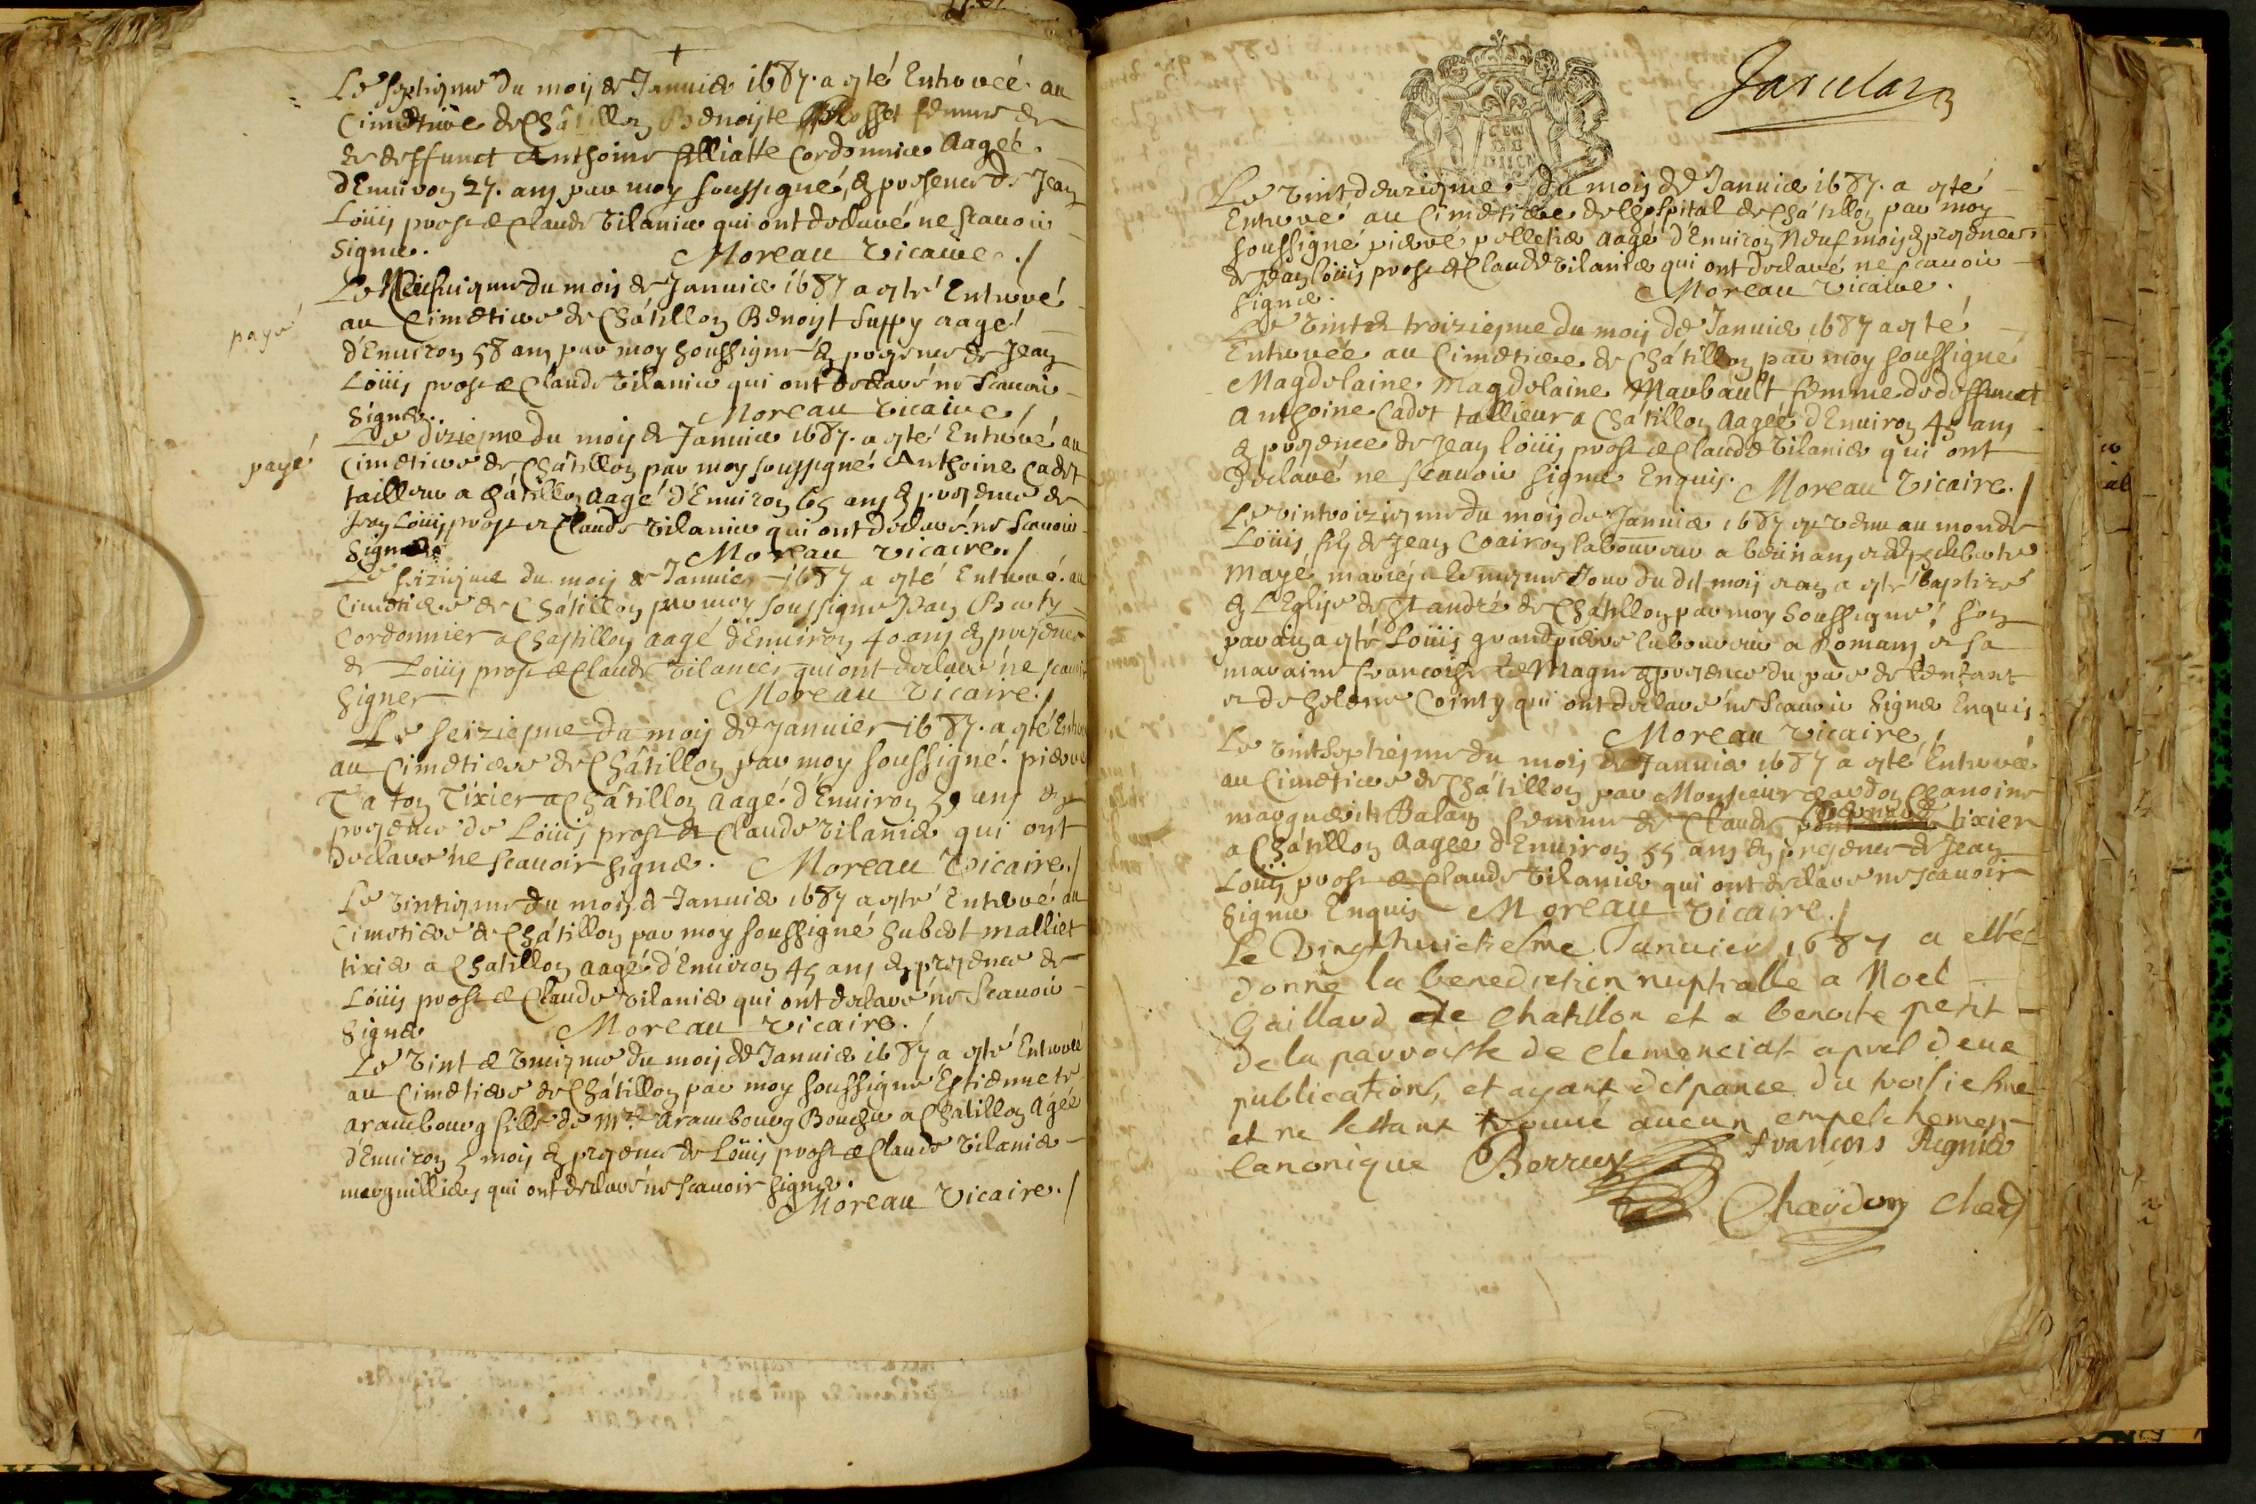 Le septiesme du mois de Januier 1687. a esté Enterreé au
Cimetiere de Châtillon Benoiste Rosset femme de
de deffunct Anthoine Alliatte Cordonnier Aageé
d'Enuiron 27. ans par moy soussigné, en presence de Jean
Loüis prost et Claude Vilanier qui ont declaré ne scauoir
signer. Moreau Vicaire./
Le du mois de Januier 1687 a esté Enterré
payé
au Cimetiere de Châtillon Benoist Suppy aagé
d'Enuiron 58 ans par moy soussigné en presence de Jean
Loüis prost et Claude Vilanier qui ont declaré ne Scauoir
signer. Moreau Vicaire/
Le diziesme du mois de Januier 1687. a esté Enterré au
payé
Cimetiere de Châtillon par moy soussigné Anthoine Cadot
tailleur a châtillon aagé d'Enuiron 65 ans en presence de
Jean Loüis prost et Claude Vilanier qui ont declaré ne Scauoir
signer Moreau Vicaire./
Le seiziesme du mois de Januier 1687 a esté Enterré au
Cimetiere de Châtillon par moy soussigné Jean Buty
Cordonnier a Chastillon aagé d'Enuiron 40 ans en presence
de Loüis prost et Claude Vilanier qui ont declaré ne scauoir
signer Moreau Vicaire./
Le seiziesme du mois de Januier 1687. a esté Enterré
au Cimetiere de Châtillon par moy soussigné pierre
Taton Tixier a Châtillon aagé d'Enuiron ans en
presence de Loüis prost et Claude Vilanier qui ont
declaré ne scauoir signer. Moreau Vicaire./
Le vintiesme du mois de Januier 1687 a esté Enterré au
Cimetiere de Châtillon par moy soussigné hubert malliet
tixier a Chatillon aagé d'Enuiron 45 ans en presence de
Loüis prost et Claude Vilanier qui ont declaré ne Scauoir
signer Moreau Vicaire./
Le vint et vniesme du mois de Januier 1687 a esté Enterreé
au Cimetiere de Châtillon par moy soussigné Estiennete
arambourg fille de Mre arambourg Boucher a Châtillon Ageé
d'Enuiron 5 mois en presence de Loüis prost et Claude Vilanier
marguilliers qui ont declaré ne scauoir signer.
Moreau Vicaire./
Le vintdeuziesme du mois de Januier 1687. a esté
Enterré au Cimetiere de l'hospital de Châtillon par moy
soussigné pierre pelletier aagé d'Enuiron Neuf mois en presence
de Jean loüis prost et Claude Vilanier qui ont declaré ne Scauoir
signer. Moreau Vicaire.
Le vintet troiziesme du mois de Januier 1687 a esté
Enterreé au Cimetiere de Châtillon par moy soussigné
Magdelaine Magdelaine Maubault femme de deffunct
Anthoine Cadot tallieur a Châtillon Aageé d'Enuiron 45 ans
en presence de Jean loüis prost et Claude Vilanier qui ont
declaré ne scauoir signer Enquis. Moreau Vicaire./
Le vintroiziesme du mois de Januier 1687 est venu au monde
Loüis fils de Jean Coairon laboureur a
Maye mariés le mesme Jour du dit mois et an a esté baptizé
en L'Eglise de St andré de Châtillon par moy soussigné, son
parain a esté Loüis grandpierre laboureur a Romans et sa
maraine francoise en presence du pere de l'enfant
et de helene Cointy qui ont declaré ne Scauoir signer Enquis.
Moreau Vicaire/
Le vintseptiesme du mois de Januier 1687 a esté Enterreé
au Cimetiere de Châtillon par Monsieur Chanoine
marguerite Balan femme de Claude tixier
a Châtillon Aageé d'Enuiron 55 ans en presence de Jean
Loüis prost et Claude Vilanier qui ont declaré ne scauoir
signer Enquis Moreau Vicaire./
Le Vingthuictiesme Januier 1687 a esté
donné la benediction nuptialle a Noel
Gaillard de Chatillon et a benoite petit
de la parroisse de Clemenciat apres deux
publications, et ayant dispance du troisiesme
et ne sestant trouué aucun empeschement
Canonique Berruy francois Regnier
Chardon